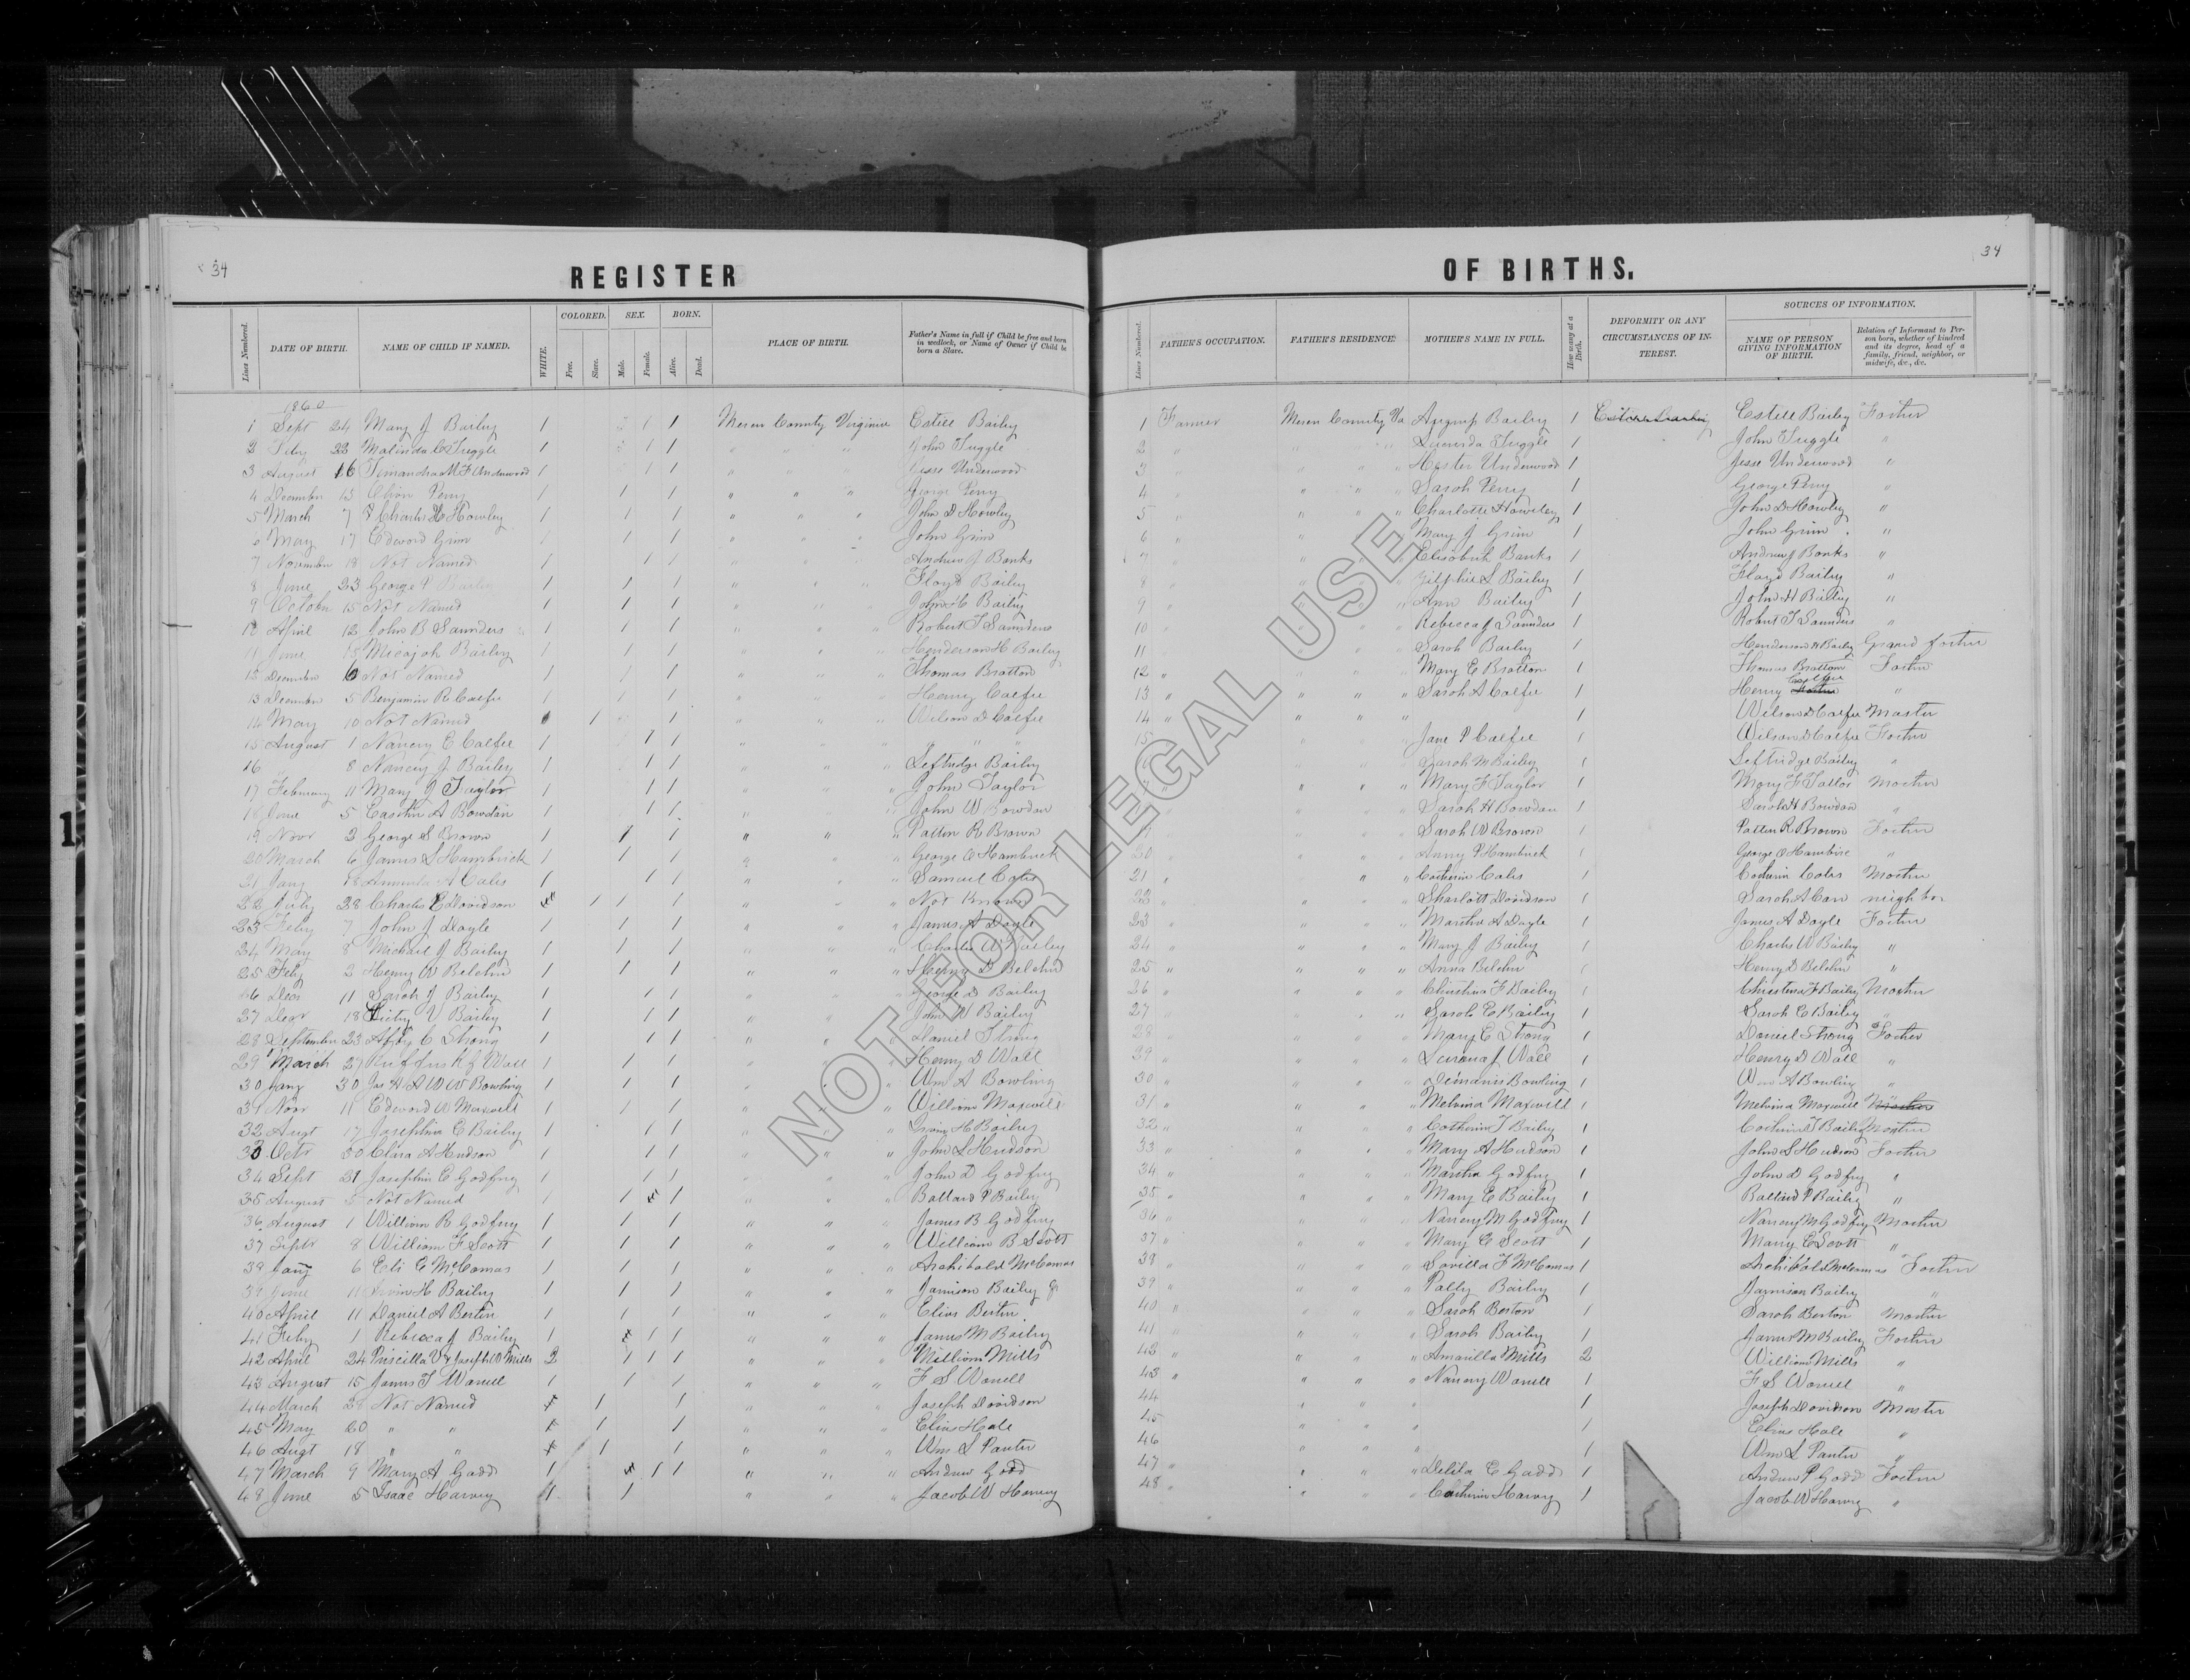 34
REGISTER
OF BIRTHS.
34
Lines Numbered.
DATE OF BIRTH.
NAME OF CHILD IF NAMED.
WHITE.
COLORED.
Free.
Slave.
SEX.
Male.
Female.
BORN.
Alive.
Dead.
PLACE OF BIRTH.
Father's Name in full if Child be free and born
in wedlock, or Name of Owner if Child be
born a Slave.
Lines Numbered.
FATHER'S OCCUPATION.
FATHER'S RESIDENCE.
MOTHER'S NAME IN FULL.
How many at a
Birth.
DEFORMITY OR ANY
CIRCUMSTANCES OF IN-
TEREST.
SOURCES OF INFORMATION.
NAME OF PERSON
GIVING INFORMATION
OF BIRTH.
Relation of Informant to Per-
son born, whether of kindred
and its degree, head of a
family, friend, neighbor, or
midwife, &c., &c.
1860
1 Sept 24 Mary J Bailey 1 1 1 Mercer County Virginia Estill Bailey 1 Farmer Mercer County Va Bailey 1 Estill Bailey Father
2 Feby Malinda C Tuggle 1 1 1 " " " John Tuggle 2 " " " " Tuggle 1 John Tuggle "
3 August 16 Underwood 1 1 1 " " " Jesse Underwood 3 " " " " Hester Underwood 1 Jesse Underwood "
4 December 13 Perry 1 1 1 " " " George Perry 4 " " " " Sarah Perry 1 George Perry "
5 March 7 Charles Howley 1 1 1 " " " John D Howley 5 " " " " Charlotte Howley 1 John D Howley "
6 May 17 Edward Grim 1 1 1 " " " John Grim 6 " " " " Mary J Grim 1 John Grim "
7 November 18 Not Named 1 1 1 " " " Andrew J Banks 7 " " " " Elisabeth Banks 1 Andrew J Banks "
8 June 23 George Bailey 1 1 1 " " " Floyd Bailey 8 " " " " Bailey 1 Floyd Bailey "
9 October 15 Not Named 1 1 1 " " " John H Bailey 9 " " " " Ann Bailey 1 John H Bailey "
10 April 12 John B Saunders 1 1 1 " " " Robert T Saunders 10 " " " " Rebecca J Saunders 1 Robert T Saunders "
11 June 15 Micajah Bailey 1 1 1 " " " Henderson H Bailey 11 " " " " Sarah Bailey 1 Henderson H Bailey Grand father
12 December 6 Not Named 1 1 1 " " " Thomas Bratton 12 " " " " Mary E Bratton 1 Thomas Bratton Father
13 December 5 Benjamin R Calfee 1 1 1 " " " Henry Calfee 13 " " " " Sarah A Calfee 1 Henry Calfee "
14 May 10 Not Named 1 1 " " " Wilson D Calfee 14 " " " " 1 Wilson D Calfee Master
15 August 1 Nancy E Calfee 1 1 1 " " " " " " 15 " " " " Jane P Calfee 1 Wilson D Calfee Father
16 8 Nancy J Bailey 1 1 1 " " " Leftridge Bailey " " " Sarah M Bailey 1 Leftridge Bailey "
17 February 11 Mary J Taylor 1 1 1 " " " John Taylor " " " Mary F Taylor 1 Mary F Taylor Mother
18 June 5 A Bowdan 1 1 1 " " " John W Bowdan " " " Sarah H Bowdan 1 Sarah H Bowdan "
19 Novr 3 George S Brown 1 1 1 " " " Patten R Brown " " " Sarah W Brown 1 Patten R Brown Father
20 March 6 James S Hambrick 1 1 1 " " " George Hambrick 20 " " " Anny P Hambrick 1 George Hambrick "
21 Jany 18 Cales 1 1 1 " " " Samuel Cales 21 " " " " Catherin Cales 1 Catherin Cales Mother
22 July 28 Charles E Davidson 1 1 1 " " " Not Known 22 " " " Sharlott Davidson 1 Sarah A Carr neighbor
23 Feby 7 John J Doyle 1 1 1 " " " James A Doyle 23 " " " " Martha A Doyle 1 James A Doyle Father
24 May 8 Michael J Bailey 1 1 1 " " " Charles W Bailey 24 " " " " Mary J Bailey 1 Charles W Bailey "
25 Feby 2 Henry W Belcher 1 1 1 " " " Henry D Belcher 25 " " " " Anna Belcher 1 Henry D Belcher "
26 Decr 11 Sarah J Bailey 1 1 1 " " " George D Bailey 26 " " " " Christina F Bailey 1 Christina F Bailey Mother
27 Decr 18 V Bailey 1 1 1 " " " John W Bailey 27 " " " " Sarah E Bailey 1 Sarah E Bailey "
28 September 23 C Strong 1 1 1 " " " Daniel Strong 28 " " " " Mary E Strong 1 Daniel Strong Father
29 March 27 Wall 1 1 1 " " " Henry D Wall 29 " " " " Wall 1 Henry D Wall "
30 Jany 30 Jas H A W W Bowling 1 1 1 " " " Wm A Bowling 30 " " " " Bowling 1 Wm A Bowling "
31 Novr 11 Edward W Maxwell 1 1 1 " " " William Maxwell 31 " " " " Melvina Maxwell 1 Melvina Maxwell Mother
32 Augt 17 Josephin E Bailey 1 1 1 " " " Irvin H Bailey 32 " " " " Catherin T Bailey 1 Catherin T Bailey Mother
33 Octr 30 Clara A Hudson 1 1 1 " " " John S Hudson 33 " " " " Mary A Hudson 1 John S Hudson Father
34 Sept 21 Josephin E Godfrey 1 1 1 " " " John D Godfrey 34 " " " " Martha Godfrey 1 John D Godfrey "
35 August 5 Not Named 1 1 1 " " " Ballard P Bailey 35 " " " " Mary E Bailey 1 Ballard P Bailey "
36 August 1 William R Godfrey 1 1 1 " " " James B Godfrey 36 " " " " Nancy M Godfrey 1 Nancy M Godfrey Mother
37 Septr 8 William F Scott 1 1 1 " " " William B Scott 37 " " " " Mary E Scott 1 Mary E Scott "
38 Jany 6 Eli E McComas 1 1 1 " " " Archibald McComas 38 " " " " Savilla F McComas 1 Archibald McComas Father
39 June 11 Irvin H Bailey 1 1 1 " " " Jamison Bailey 39 " " " " Polly Bailey 1 Jamison Bailey "
40 April 11 Daniel A Berten 1 1 1 " " " Elias Berten 40 " " " " Sarah Berton 1 Sarah Berton Mother
41 Feby 1 Rebecca J Bailey 1 1 1 " " " James M Bailey 41 " " " " Sarah Bailey 1 James M Bailey Father
42 April 24 Priscilla V & Joseph W Mills 2 1 1 1 " " " William Mills 42 " " " " Amarilla Mills 2 William Mills "
43 August 15 James T Worrell 1 1 1 " " " F S Worrell 43 " " " " Nancy Worrell 1 F S Worrell "
44 March 28 Not Named 1 1 " " " Joseph Davidson 44 " " " 1 Joseph Davidson Master
45 May 20 " " 1 1 " " " Elias Hale 45 " " " 1 Elias Hale "
46 Augt 18 " " 1 1 " " " Wm S 46 " " " 1 Wm S "
47 March 9 Mary A Gadd 1 1 1 " " " Andrew Gadd 47 " " " " Delila E Gadd 1 Andrew P Gadd Father
48 June 5 Isaac Harvey 1 1 " " " Jacob W Harvey 48 " " " " Catherin Harvey 1 Jacob W Harvey "
NOT FOR LEGAL USE